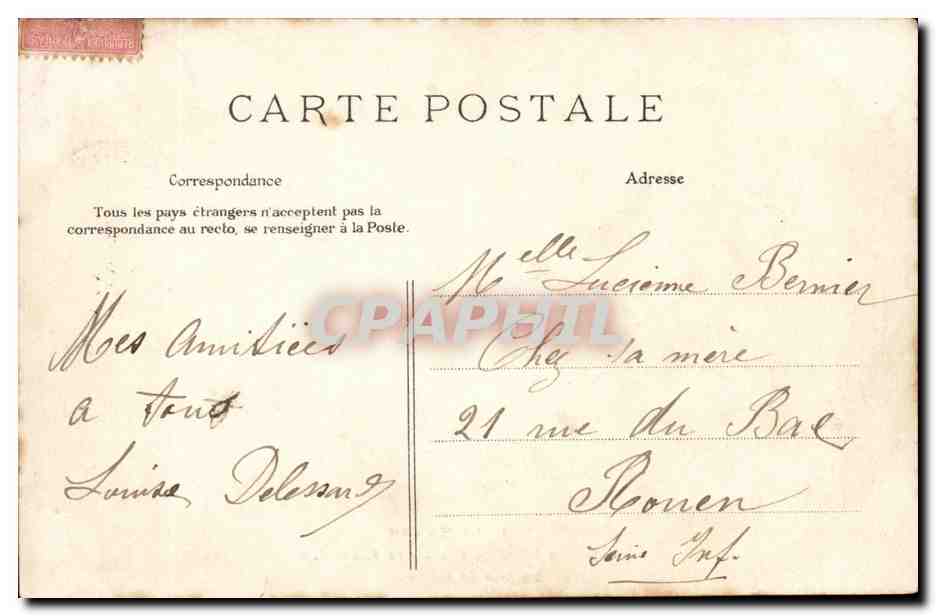 CARTE POSTALE
Correspondance
Tous les pays étrangers n'acceptent pas la
correspondance au recto, se renseigner à la Poste.
Mes Amitiées
a tous
Louise
Adresse
Melle Lucienne Bernier
Chez sa mère
21 rue du Bac
Rouen
Seine Inf.
CPAPHIL